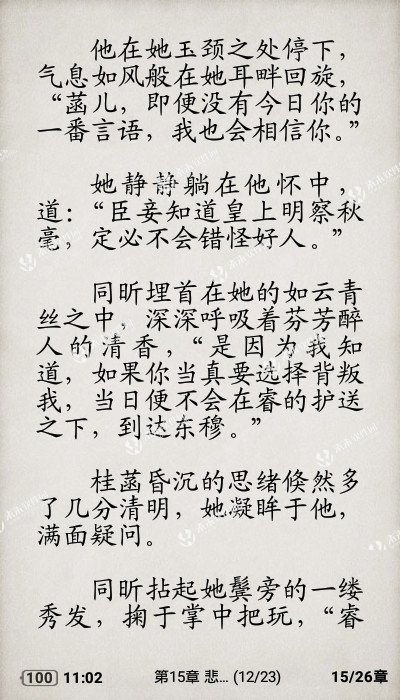 他在她玉颈之处停下，
气息如风般在她耳畔回旋，
“菡儿，即便没有今日你的
一番言语，我也会相信你。”
她静静躺在他怀中，
道：“臣妾知道皇上明察秋
毫，定必不会错怪好人。”
同昕埋首在她的如云青
丝之中，深深呼吸着芬芳醉
人的清香，“是因为我知
道，如果你当真要选择背叛
我，当日便不会在睿的护送
之下，到达东穆。”
桂菡昏沉的思绪倏然多
了几分清明，她凝眸于他，
满面疑问。
同昕拈起她鬓旁的一缕
秀发，掬于掌中把玩，“睿
100 11:02 第15章 悲... (12/23) 15/26章